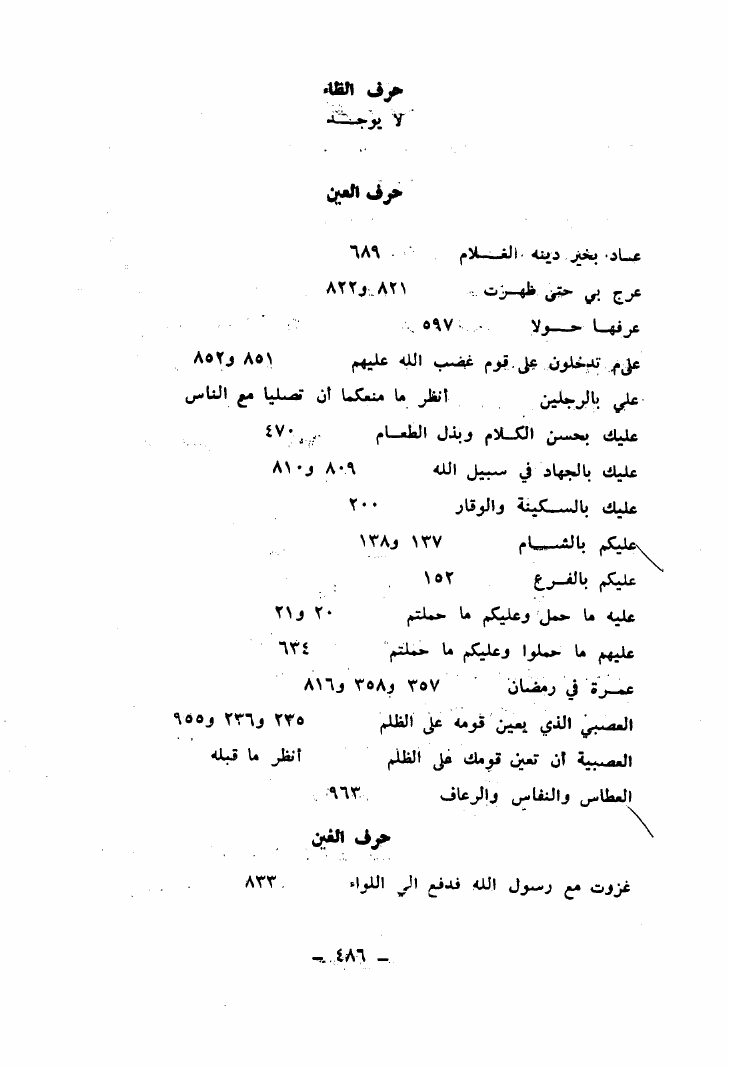 حرف الظاء
لا يوجــد
حرف العين
عــاد بخير دينه الغــلام ٦٨٩
عرج بي حتى ظهــرت ٨٢١ و٨٢٢
عرفهــا حــولا ٥٩٧
علام تدخلون على قوم غضب الله عليهم ٨٥١ و٨٥٢
علي بالرجلين أنظر ما منعكما أن تصليا مع الناس
عليك بحسن الكلام وبذل الطعــام ٤٧٠
عليك بالجهاد في سبيل الله ٨٠٩ و٨١٠
عليك بالســكينة والوقار ٢٠٠
عليكم بالشــام ١٣٧ و١٣٨
عليكم بالفــرع ١٥٢
عليه ما حمل وعليكم ما حملتم ٢٠ و٢١
عليهم ما حملوا وعليكم ما حملتم ٦٣٤
عمــرة في رمضان ٣٥٧ و٣٥٨ و٨١٦
العصبي الذي يعين قومه على الظلم ٢٣٥ و٢٣٦ و٩٥٥
العصبية أن تعين قومك على الظلم أنظر ما قبله
العطاس والنفاس والرعاف ٩٦٣
حرف الغين
غزوت مع رسول الله فدفع الي اللواء ٨٣٣
– ٤٨٦ –